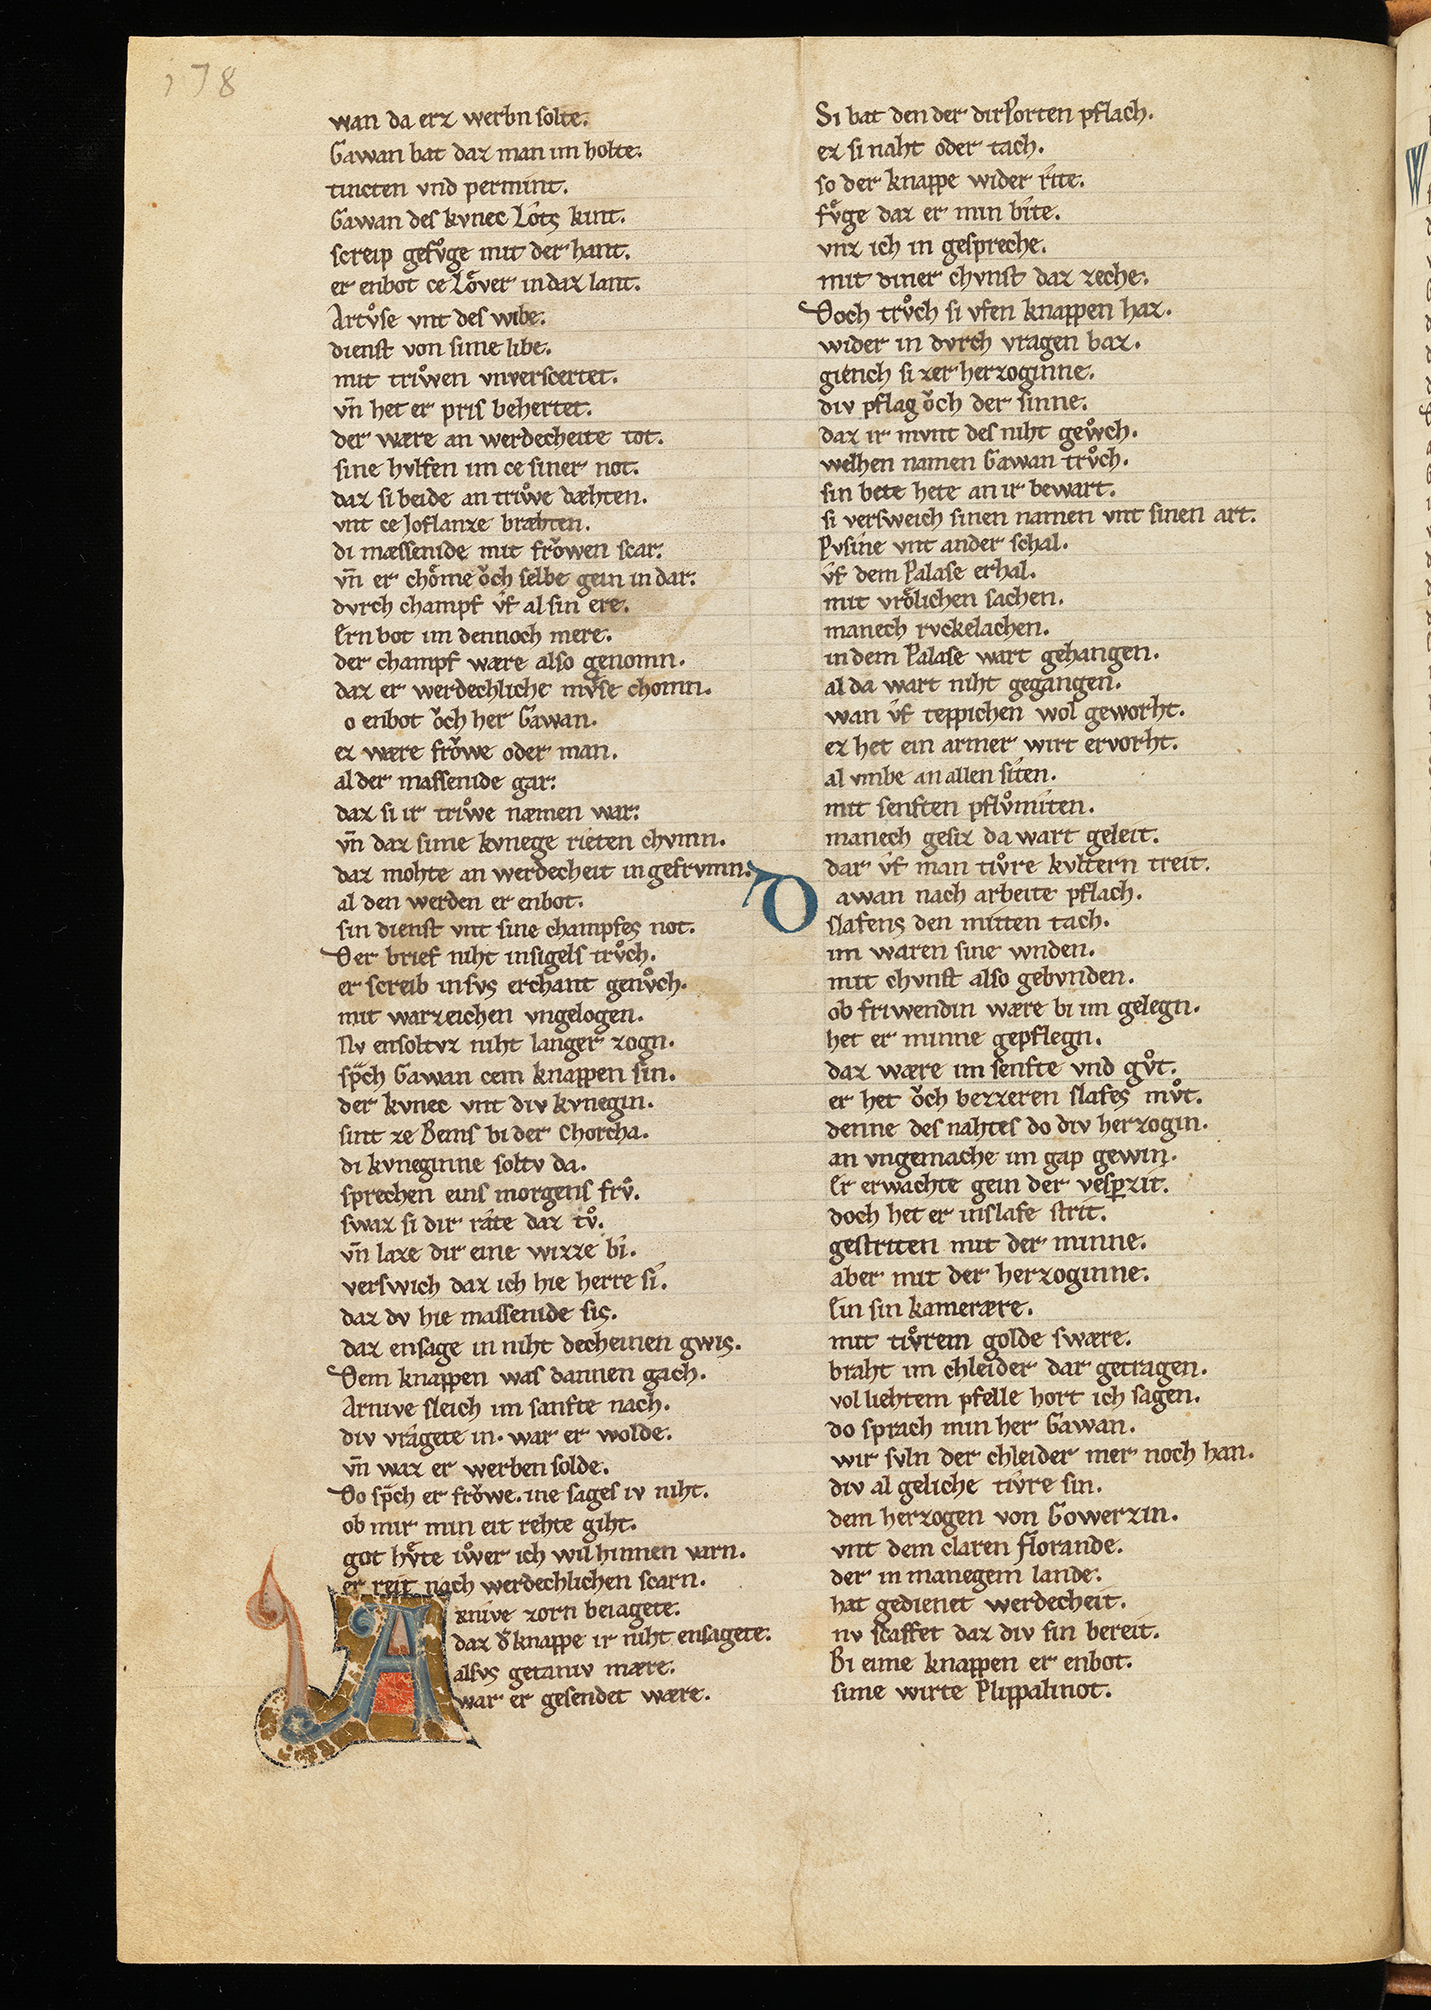 178
wan da erz werbn solte.
Gawan bat daz man im holte.
tincten vnd permint.
Gawan des kvnec Lots kint.
screip gefvͦge mit der hant.
er enbot ce Loͮver in daz lant.
Artvͦse vnt des wibe.
dienst von sime libe.
mit triwͦen vnverscertet.
vn̄ het er pris behertet.
der wære an werdecheite tot.
sine hvlfen im ce siner not.
daz si beide an triwͦe dæhten.
vnt ce Ioflanze bræhten.
di mæssenide mit froͮwen scar.
vn̄ er choͤme oͮch selbe gein in dar.
dvrch champf vf al sin ere.
Ern bot im dennoch mere.
der champf wære also genomn.
daz er werdechliche mvͤse chomn.
o enbot oͮch her Gawan.
ez wære froͮwe oder man.
al der massenide gar.
daz si ir triwͦe næmen war.
vn̄ daz sime kvnege rieten chvmn.
daz mohte an werdecheit in gefrvmn.
al den werden er enbot.
sin dienst vnt sine champfes not.
Der brief niht insigels trvͦch.
er screib in svs erchant genvͦch.
mit warzeichen vngelogen.
Nv ensoltvz niht langer zogn.
sp̄ch Gawan cem knappen sin.
der kvnec vnt div kvnegin.
sint ze Bems bi der Chorcha.
di kvneginne soltv da.
sprechen eins morgens frvͦ.
swaz si dir rate daz tvͦ.
vn̄ laze dir eine wizze bi.
verswich daz ich hie herre si.
daz dv hie massenide sis.
daz ensage in niht decheinen gwis.
Dem knappen was dannen gach.
Arnive sleich im sanfte nach.
div vragete in. war er wolde.
vn̄ waz er werben solde.
Do sp̄ch er froͮwe. ine sages iv niht.
ob mir min eit rehte giht.
got hvͤte iwͦer ich wil hinnen varn.
er reit nach werdechlichen scarn.
Arnive zorn beiagete.
daz d̄ knappe ir niht ensagete.
alsvs getaniv mære.
war er gesendet wære.
Si bat den der dir Porten pflach.
ez si naht oder tach.
so der knappe wider rite.
fvͤge daz er min bite.
vnz ich in gespreche.
mit diner chvnst daz zeche.
Doch trvͦch si vfen knappen haz.
wider in dvrch vragen baz.
giench si zer herzoginne.
div pflag oͮch der sinne.
daz ir mvnt des niht gewͦch.
welhen namen Gawan trvͦch.
sin bete hete an ir bewart.
si versweich sinen namen vnt sinen art.
Pvsine vnt ander schal.
vf dem Palase erhal.
mit vroͤlichen sachen.
manech rvckelachen.
in dem Palase wart gehangen.
al da wart niht gegangen.
wan vf teppichen wol geworht.
ez het ein armer wirt ervorht.
al vmbe an allen siten.
mit senften pflvͦmiten.
manech gesiz da wart geleit.
dar vf man tivͦre kvltern treit.
Gawan nach arbeite pflach.
slafens den mitten tach.
im waren sine wnden.
mit chvnst also gebvnden.
ob friwendin wære bi im gelegn.
het er minne gepflegn.
daz wære im senfte vnd gvͦt.
er het oͮch bezzeren slafes mvͦt.
denne des nahtes do div herzogin.
an vngemache im gap gewin.
Er erwachte gein der vesp̄zit.
doch het er in slafe strit.
gestriten mit der minne.
aber mit der herzoginne.
Ein sin kamerære.
mit tivͦrem golde swære.
braht im chleider dar getragen.
vol liehtem pfelle hort ich sagen.
do sprach min her Gawan.
wir svln der chleider mer noch han.
div al geliche tivre sin.
dem herzogen von Gowerzin.
vnt dem claren florande.
der in manegem lande.
hat gedienet werdecheit.
nv scaffet daz div sin bereit.
Bi eime knappen er enbot.
sime wirte Plippalinot.